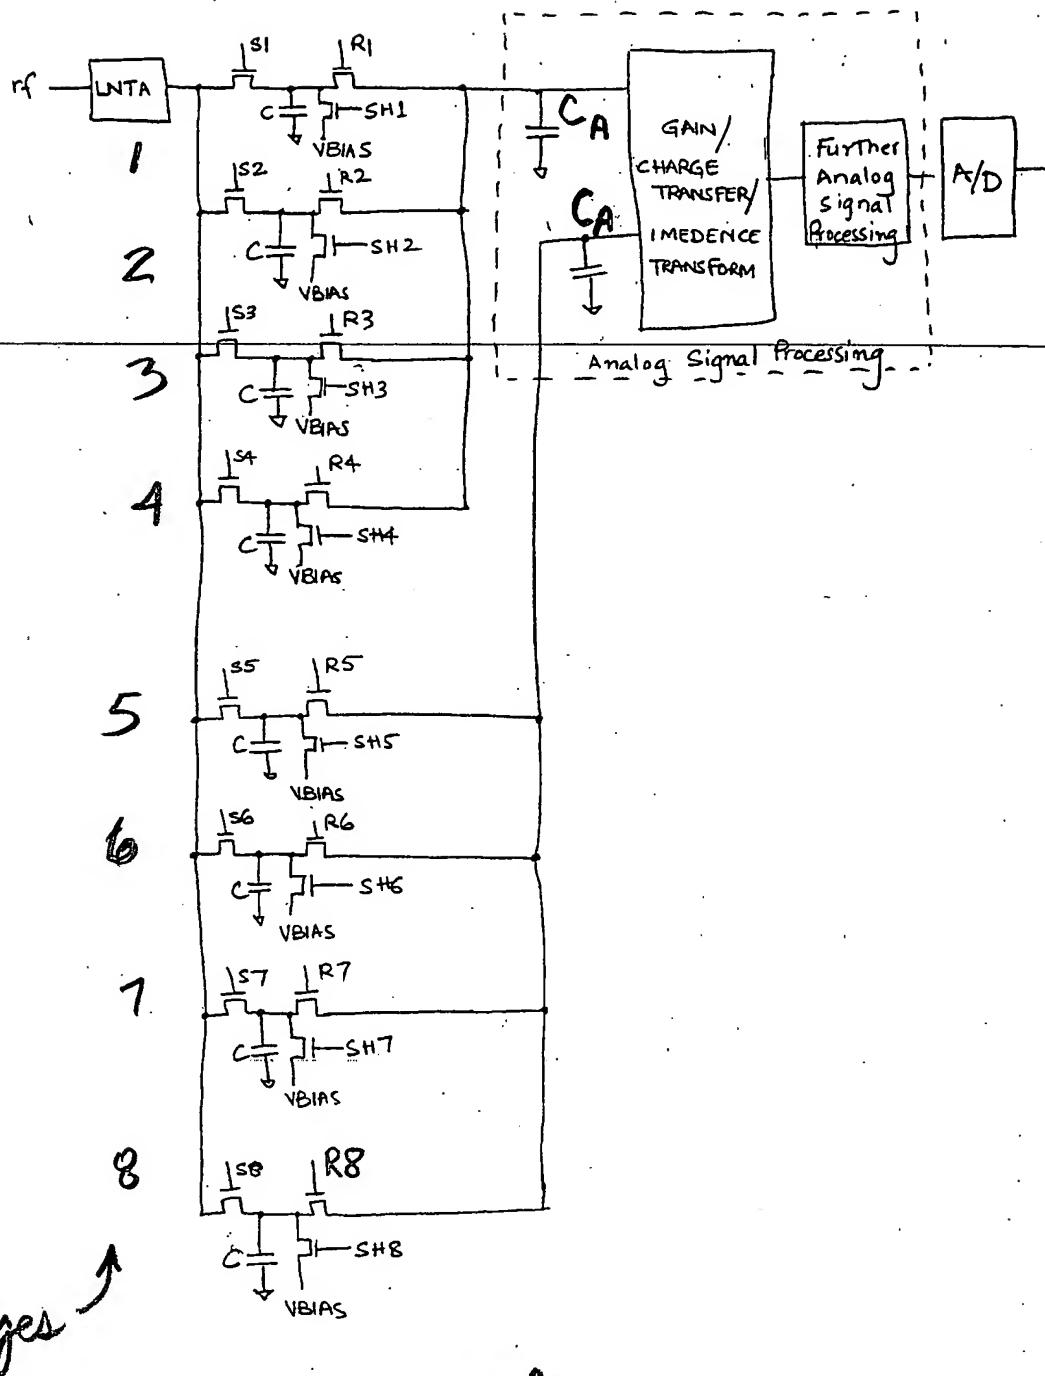 S1
R1
rf
LNTA
C
SH1
VBIAS
1
S2
R2
C
SH2
VBIAS
2
S3
R3
3
C
SH3
VBIAS
S4
R4
4
C
SH4
VBIAS
S5
R5
5
C
SH5
VBIAS
S6
R6
6
C
SH6
VBIAS
S7
R7
7
C
SH7
VBIAS
8
S8
R8
C
SH8
VBIAS
CA
CA
GAIN/
CHARGE
TRANSFER/
IMEDENCE
TRANSFORM
Further
Analog
Signal
Processing
A/D
Analog Signal Processing